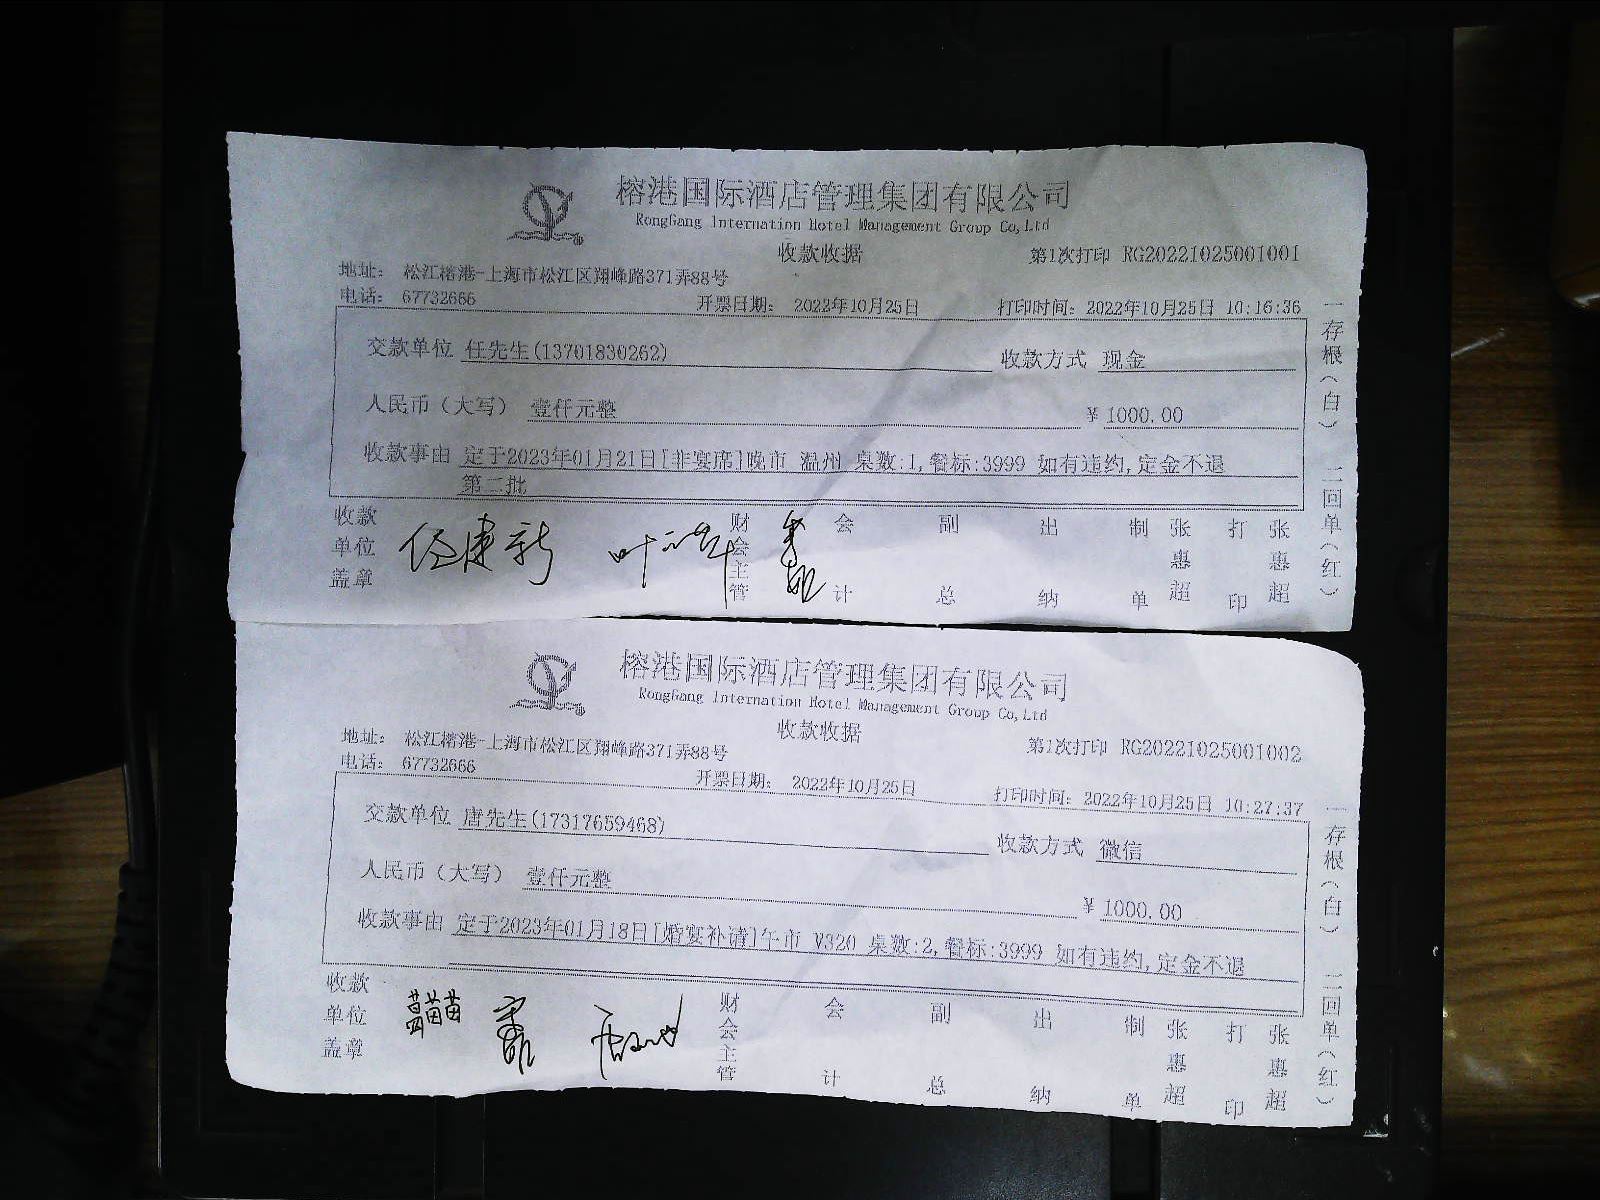 榕港国际酒店管理集团有限公司
RongGang International Hotel Management Group Co,Ltd
收款收据
第1次打印 RG20221025001001
地址： 松江榕港-上海市松江区翔峰路371弄88号
电话： 67732666
开票日期： 2022年10月25日
打印时间：2022年10月25日 10:16:36
交款单位 任先生(13701830262)
收款方式 现金
人民币（大写） 壹仟元整
¥ 1000.00
收款事由 定于2023年01月21日[非宴席]晚市 温州 桌数:1,餐标:3999 如有违约,定金不退
第二批
收款单位盖章 任建新
财会主管
会计
副总
出纳
制单 张惠超
打印 张惠超
一存根（白） 二回单（红）
榕港国际酒店管理集团有限公司
RongGang International Hotel Management Group Co,Ltd
收款收据
第1次打印 RG20221025001002
地址： 松江榕港-上海市松江区翔峰路371弄88号
电话： 67732666
开票日期： 2022年10月25日
打印时间：2022年10月25日 10:27:37
交款单位 唐先生(17317659468)
收款方式 微信
人民币（大写） 壹仟元整
¥ 1000.00
收款事由 定于2023年01月18日[婚宴补请]午市 V320 桌数:2,餐标:3999 如有违约,定金不退
收款单位盖章
财会主管
会计
副总
出纳
制单 张惠超
打印 张惠超
一存根（白） 二回单（红）